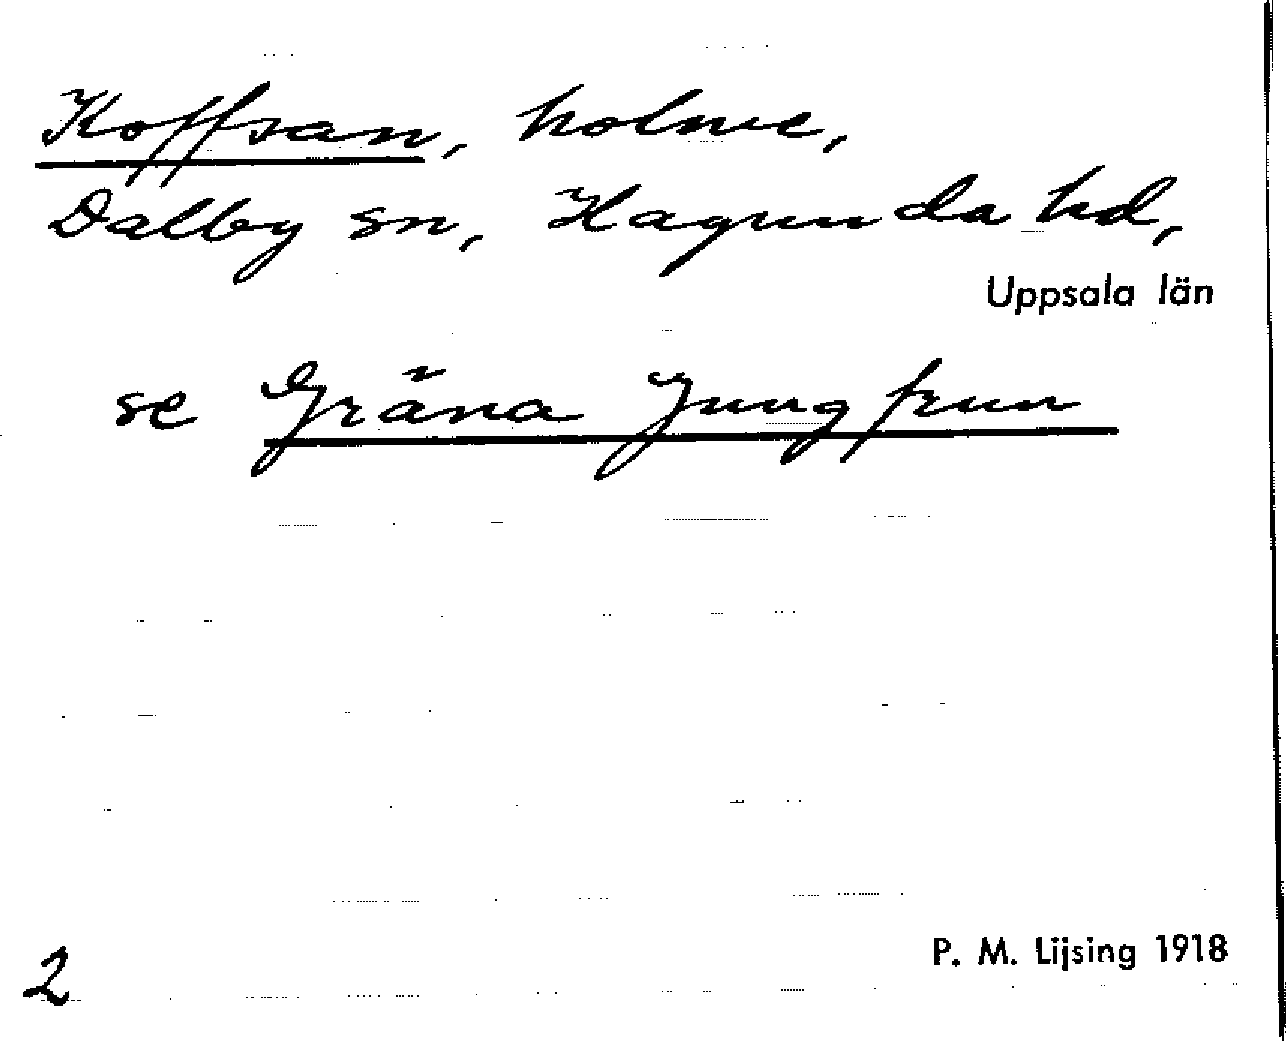 Koffsan, holme,
Dalby sn, Hagunda hd,
Uppsala län
se Gräna Jungfrun
P. M. Lijsing 1918
2